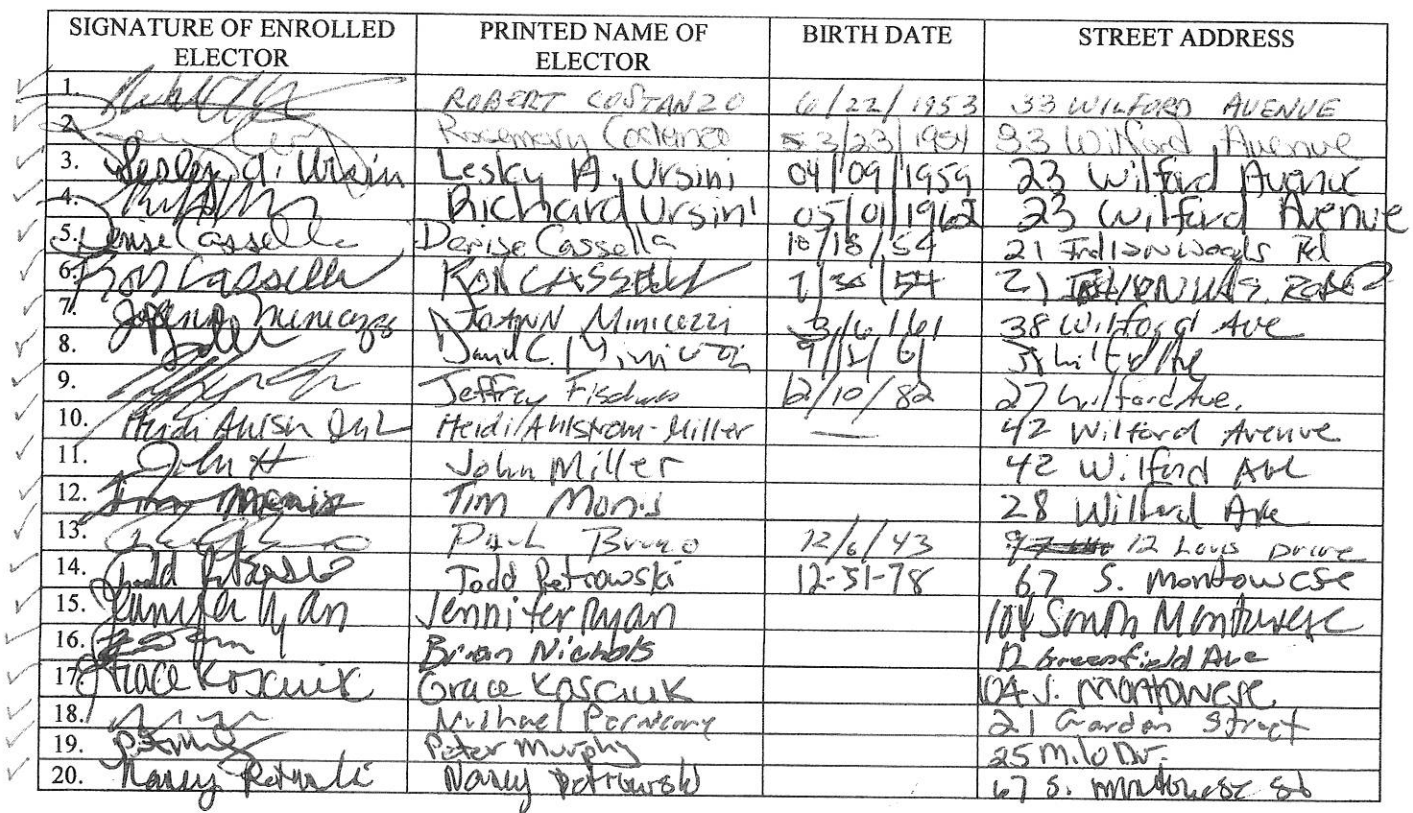 SIGNATURE OF ENROLLED ELECTOR PRINTED NAME OF ELECTOR BIRTH DATE STREET ADDRESS
1. ROBERT COSTANZO 6/22/1953 33 WILFORD AVENUE
2. Rosemary Costanzo 3/23/1954 33 Wilford Avenue
3. Lesley A. Ursini Lesley A. Ursini 04/09/1959 23 Wilford Avenue
4. Richard Ursini 05/01/1962 23 Wilford Avenue
5. Denise Cassella Denise Cassella 10/18/54 21 Indian Woods Rd
6. Ron Cassella RON CASSELLA 21
7. JoAnn Minicozzi JOANN Minicozzi 3/6/61 38 Wilford Ave
8. David C. Minicozzi Wilford Ave
9. Jeffrey 12/10/82 27 Wilford Ave.
10. Heidi Heidi Ahlstrom-Miller — 42 Wilford Avenue
11. John John Miller 42 Wilford Ave
12. Tim Tim 28 Wilford Ave
13. Paul Bruno 12/6/43 12 Louis Drive
14. Todd Petrowski Todd Petrowski 12-31-78 67 S. Montowese
15. Jennifer Ryan Jennifer Ryan 104 South Montowese
16. Brian Nichols 12 Greenfield Ave
17. Grace Kosciuk Grace Kosciuk 104 S. Montowese
18. Michael 21 Garden Street
19. Peter Murphy 25 Milo Dr.
20. Nancy Petrowski Nancy Petrowski 67 S. Montowese St